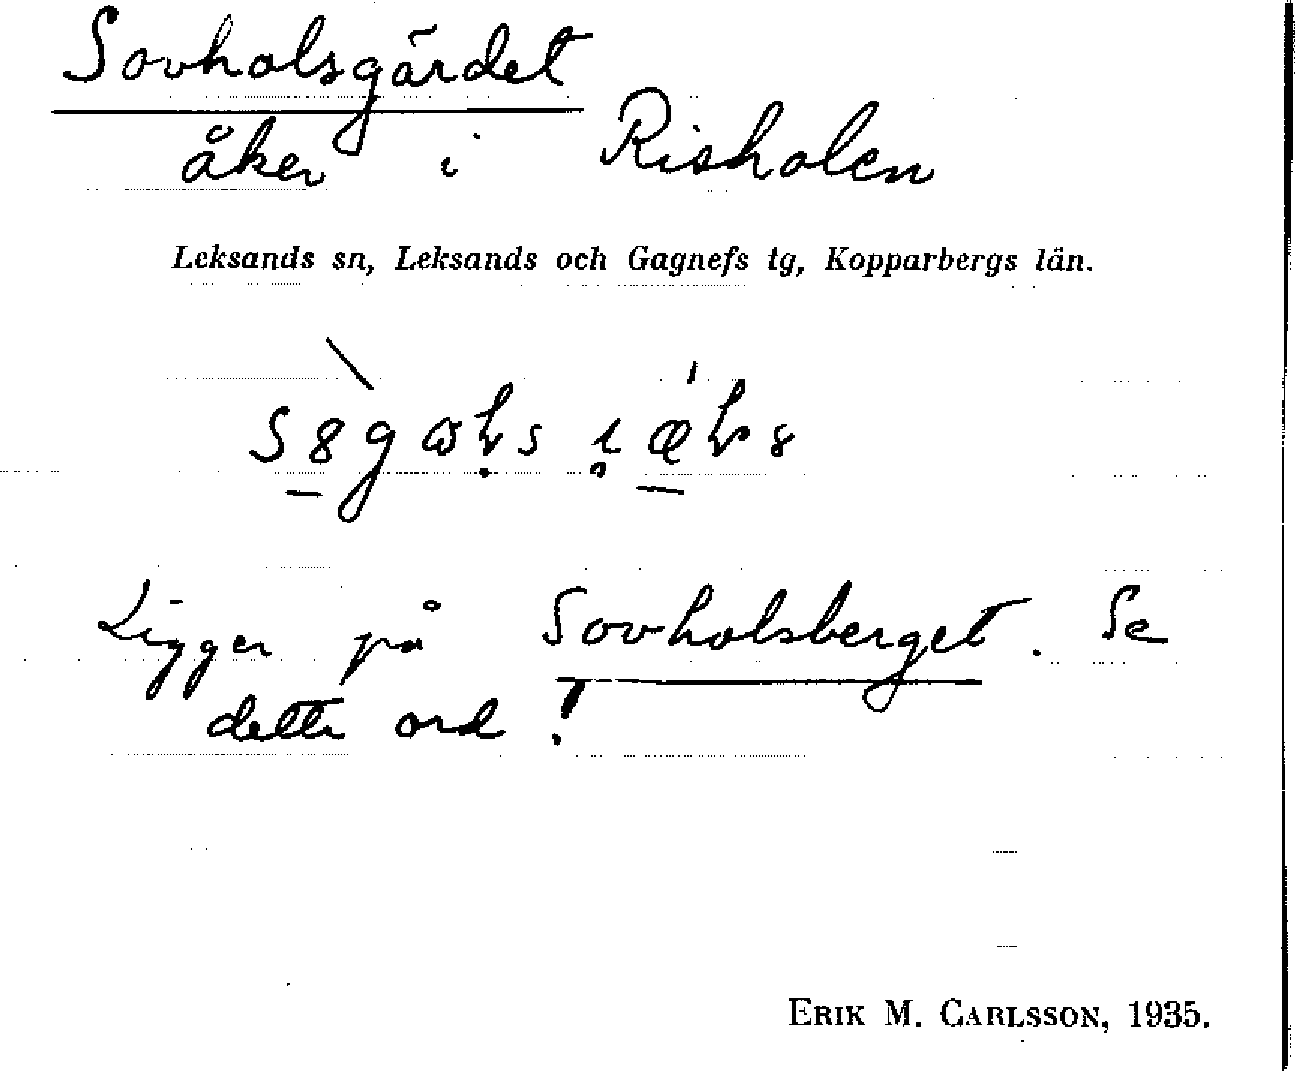 Sovholsgärdet
åker i Risholen
Leksands sn, Leksands och Gagnefs tg, Kopparbergs län.
Ligger på Sovholsberget. Se
detta ord!
ERIK M. CARLSSON, 1935.